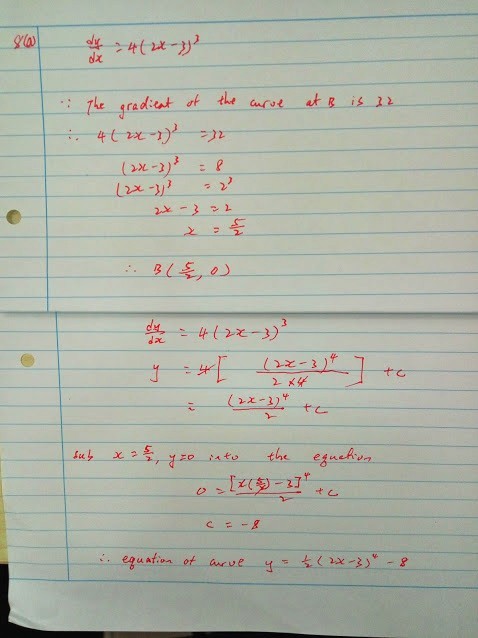 8(a) dy/dx = 4(2x-3)³
∵ The gradient of the curve at B is 32
∴ 4(2x-3)³ = 32
(2x-3)³ = 8
(2x-3)³ = 2³
2x - 3 = 2
x = 5/2
∴ B(5/2, 0)
dy/dx = 4(2x-3)³
y = 4[(2x-3)⁴/(2×4)] + c
= (2x-3)⁴/2 + c
sub x = 5/2, y=0 into the equation
0 = [2(5/2)-3]⁴/2 + c
c = -8
∴ equation of curve y = ½(2x-3)⁴ - 8